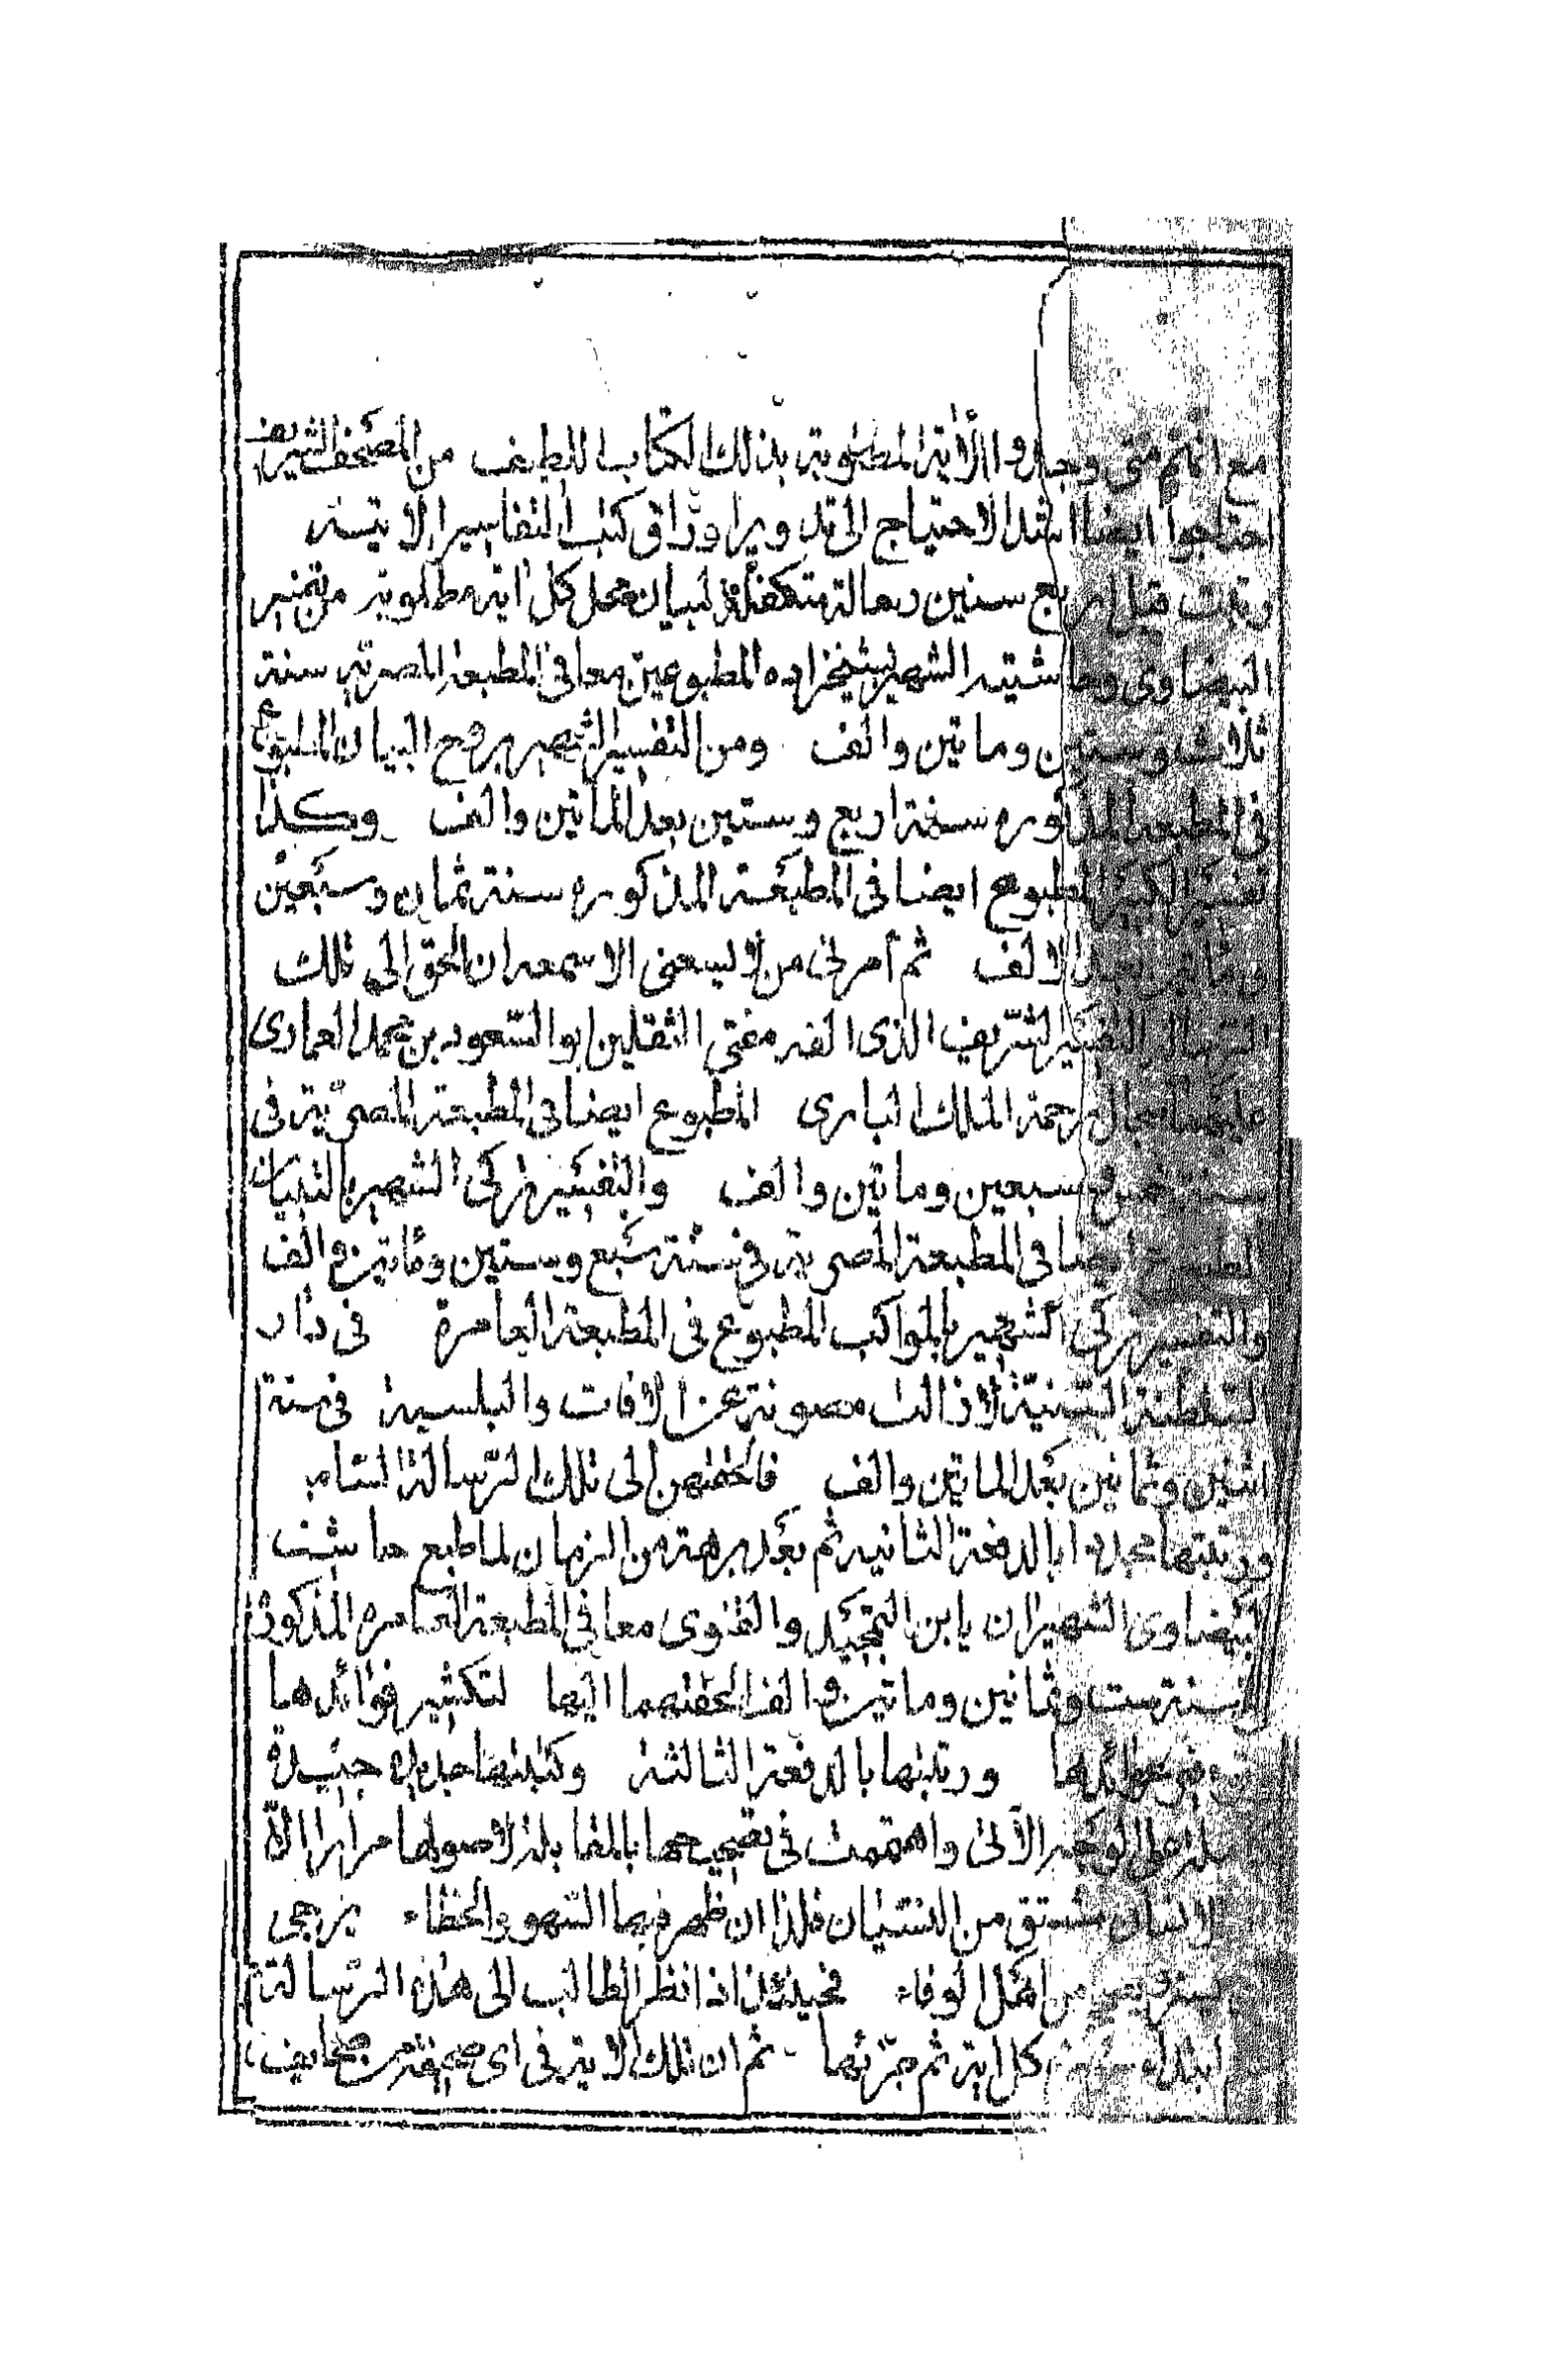 مع انهم متى وجدوا الأية المطلوبة بذلك الكتاب اللطيف من المصحف الشريف
احتاجوا ايضا اشد الاحتياج الى تدوير اوراق كتب التفاسير الاتية
رتبت قبل اربع سنين رسالة متكفلة لبيان محل كل اية مطلوبة من تفسير
البيضاوى وحاشيته الشهير بشيخزاده المطبوعين معا فى المطبعة المصرية سنة
ثلاث وستين وماتين والف ومن التفسير الشهير بروح البيان المطبوع
فى المطبعة المذكوره سنة اربع وستين بعد الماتين والف وكذا
تفسير الكبير المطبوع ايضا فى المطبعة المذكوره سنة ثمان وسبعين
بعد الالف ثم أمرنى من لا يسعنى الا سمعه ان الحق الى تلك
الرسالة التفسير الشريف الذى الفه مفتى الثقلين ابو السعود بن محمد العمادى
عليهما رحمة الملك البارى المطبوع ايضا فى المطبعة المصرية فى
سنة خمس وسبعين وماتين والف والتفسير تركى الشهير بالتبيان
المطبوع ايضا فى المطبعة المصرية فى سنة سبع وستين وماتين والف
والتفسير تركى الشهير بالمواكب المطبوع فى المطبعة العامرة فى دار
السلطنة السنية لا زالت مصونة عن الافات والبلسية فى سنة
اثنين وثمانين بعد الماتين والف فالحقتهن الى تلك الرسالة السامه
ورتبتها مجددا بالدفعة الثانيه ثم بعد برهة من الزمان لما طبع حاشيت
البيضاوى الشهيران يابن التمجيد والقنوى معا فى المطبعة العامره المذكورة
لسنة ست وثمانين وماتين والف الحقتهما اليها لتكثير فوائدها
ورتبتها بالدفعة الثالثة وكتبتها جديدة
على الوجه الآتى واهتممت فى تصحيحها بالمقابلة لاصولها مرارا الا
الانسان مشتق من النسيان فلذا ان ظهر فيها السهو والخطاء يرجى
من اهل الوفاء فحينئذ اذا نظر الطالب الى هذه الرسالة
ابتداء كل اية ثم جزئها ثم ان تلك الاية فى اى صحيفة من صحايف